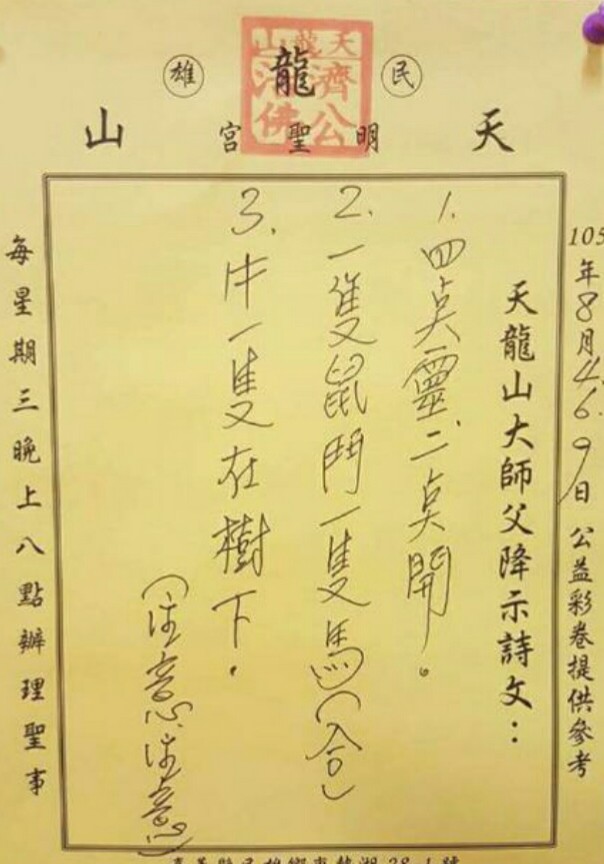 民 龍 雄
天龍山
濟公
活佛
天 明聖宮 山
105年8月4.6.9日 公益彩卷提供參考
天龍山大師父降示詩文：
1. 四点靈、二点開。
2. 一隻鼠鬥一隻馬（合）
3. 牛一隻在樹下。
（注意注意）
每星期三晚上八點辦理聖事